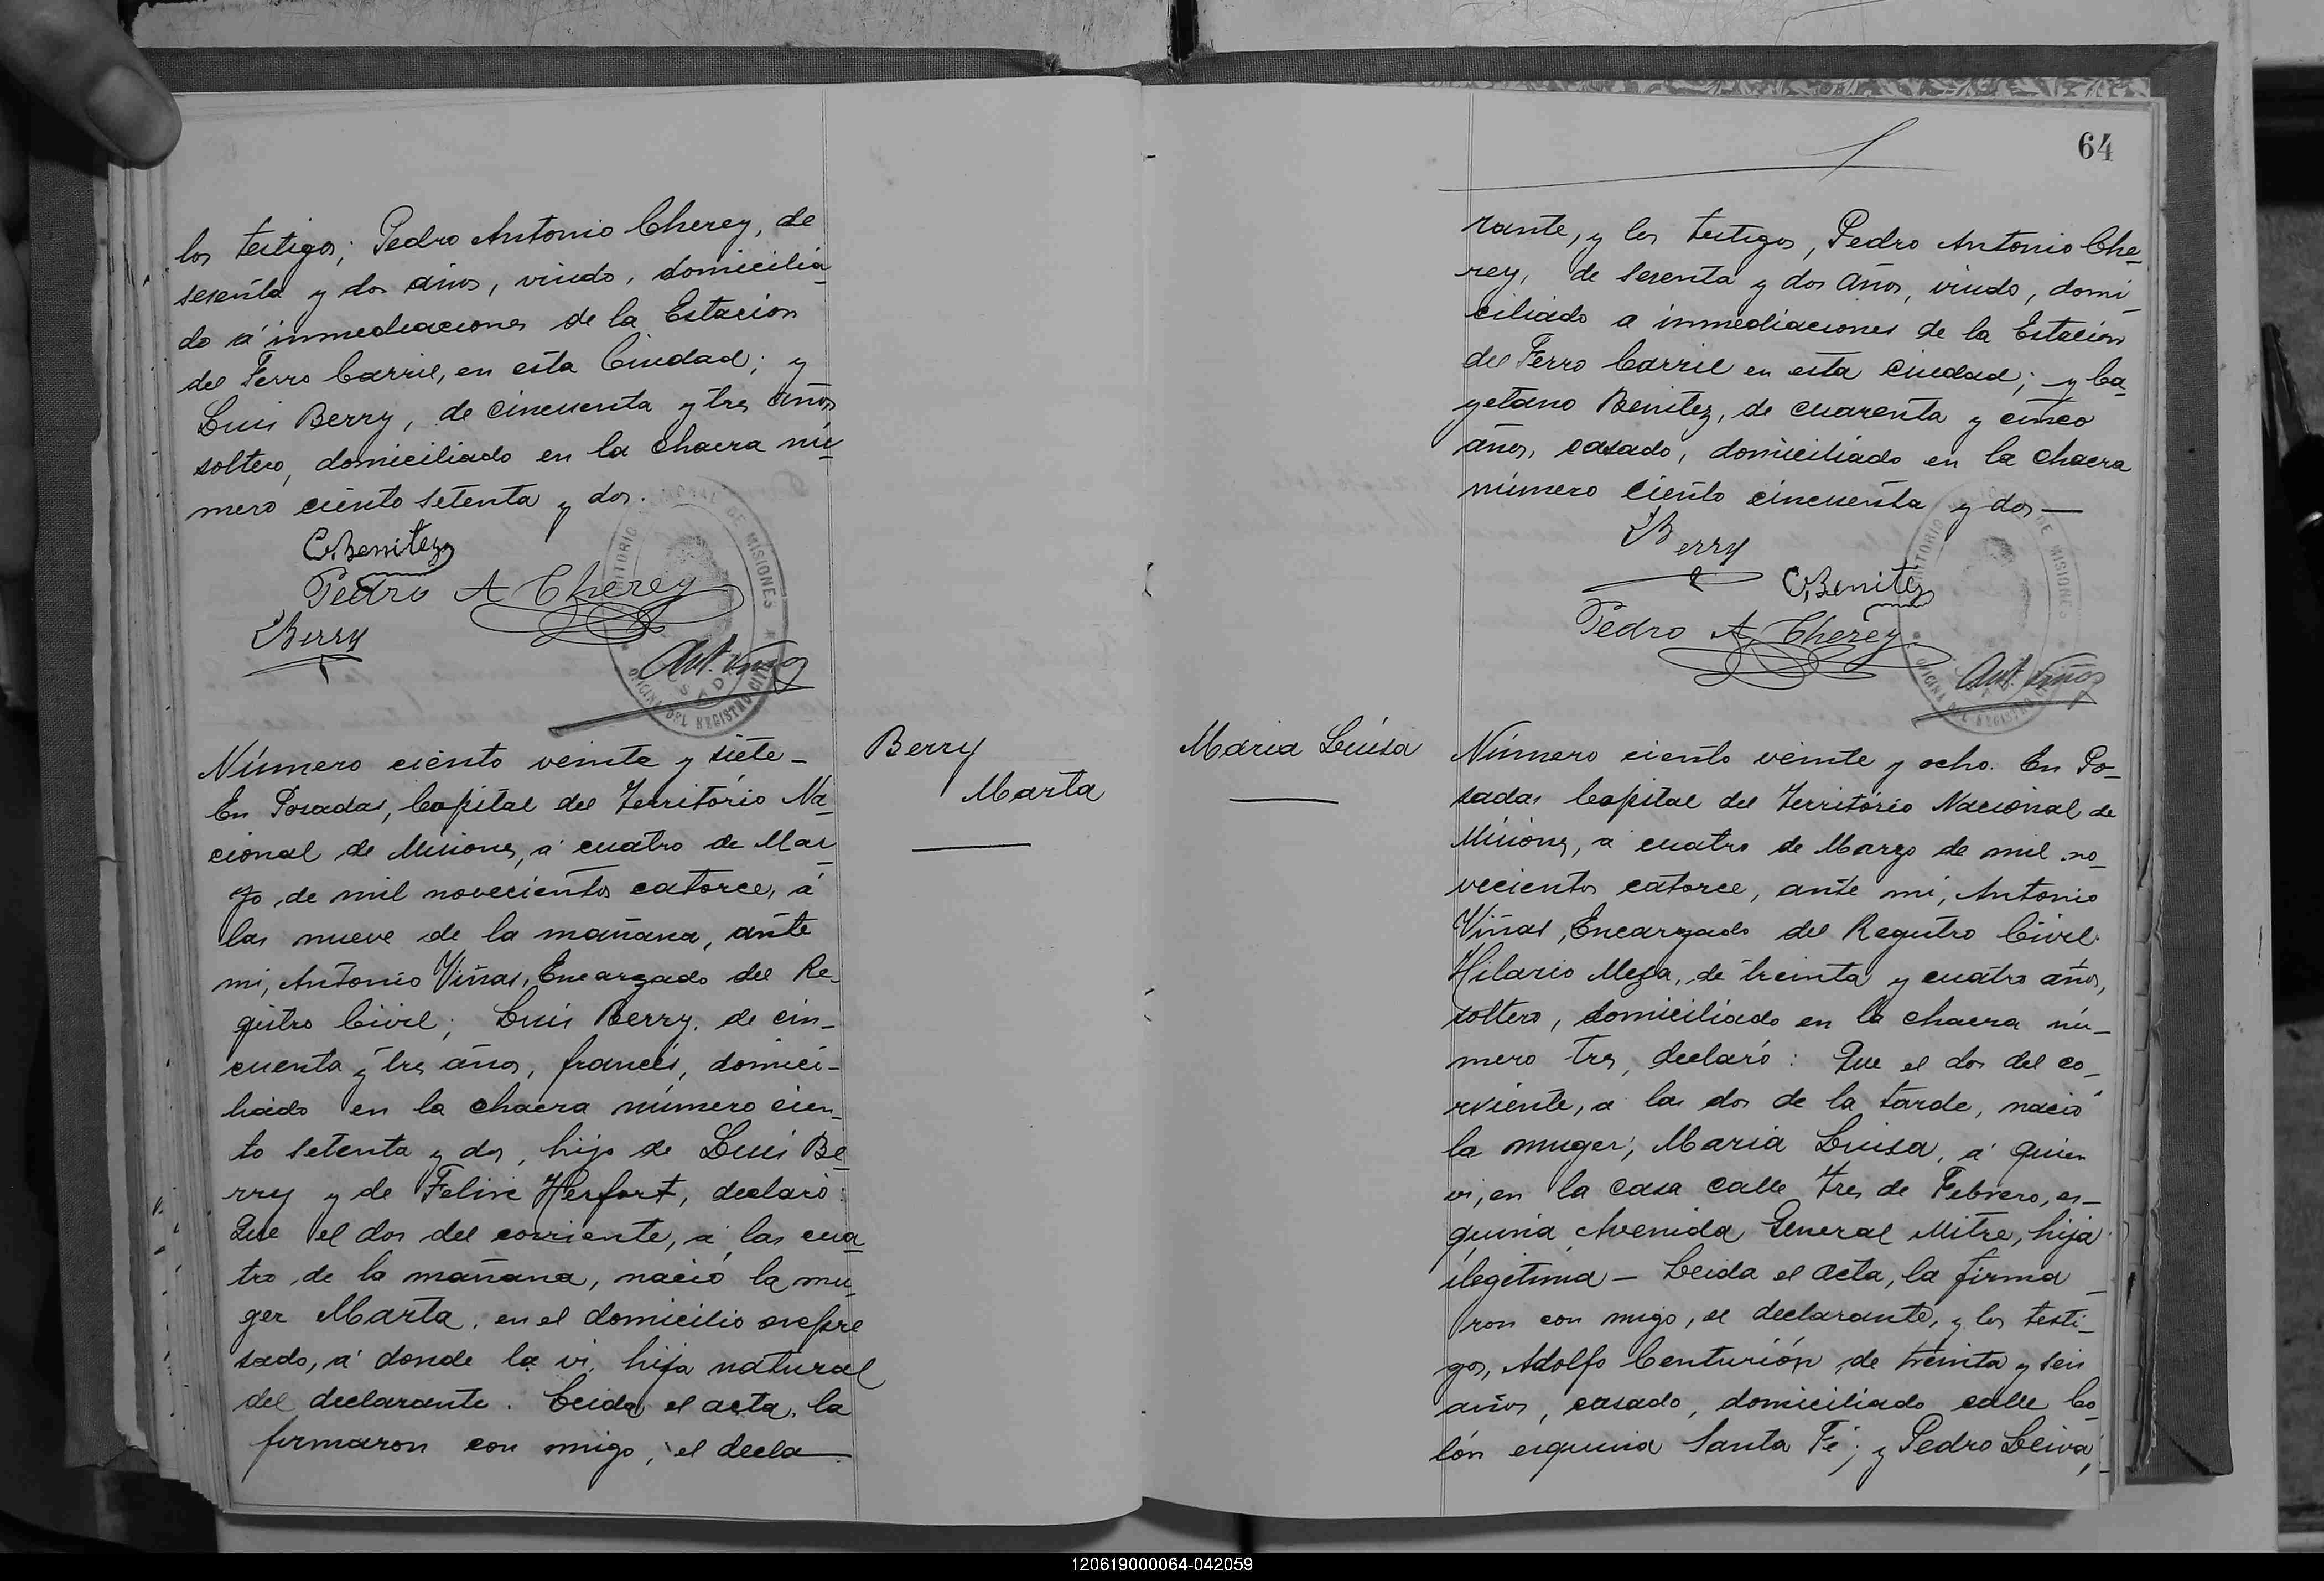 los testigos; Pedro Antonio Cherey, de
sesenta y dos años, viudo, domicilia-
do á inmediaciones de la Estacion
del Ferro Carril, en esta Ciudad; y
Luis Berry, de cincuenta y tres años
soltero, domiciliado en la chacra nú-
mero ciento setenta y dos.
C. Benitez
Pedro A Cherey
LBerry
Ant. Viñas
TERRITORIO NACIONAL DE MISIONES
OFICINA DEL REGISTRO CIVIL
POSADAS
Número ciento veinte y siete-
En Posadas, Capital del Territorio Na-
cional de Misiones, á cuatro de Mar-
zo de mil novecientos catorce, á
las nueve de la mañana, ante
mi, Antonio Viñas, Encargado del Re-
gistro Civil; Luis Berry, de cin-
cuenta y tres años, francés, domici-
liado en la chacra número cien-
to setenta y dos, hijo de Luis Be-
rry y de Herfort, declaró:
Que el dos del corriente, á las cua-
tro de la mañana, nació la mu-
ger Marta, en el domicilio expre
sado, á donde la vi, hija natural
del declarante. Leida el acta, la
firmaron con migo, el decla-
Berry
Marta
64
rante, y los testigos, Pedro Antonio Che-
rey, de sesenta y dos años, viudo, domi-
ciliado a inmediaciones de la Estacion
del Ferro Carril en esta Ciudad; y Ca-
yetano Benitez, de cuarenta y cinco
años, casado, domiciliado en la chacra
número ciento cincuenta y dos—
LBerry
C. Benitez
Pedro A. Cherey
Ant. Viñas
TERRITORIO DE MISIONES
OFICINA DEL REGISTRO
Maria Luisa
Número ciento veinte y ocho. En Po-
sadas Capital del Territorio Nacional de
Misiones, á cuatro de Marzo de mil no-
vecientos catorce, ante mi, Antonio
Viñas, Encargado del Registro Civil.
Hilario Meza, de treinta y cuatro años,
soltero, domiciliado en la chacra nú-
mero tres, declaró: Que el dos del co-
rriente, á las dos de la tarde, nació
la muger, Maria Luisa, á quien
vi, en la casa calle Tres de Febrero, es-
quina Avenida General Mitre, hija
ilegitima — Leida el acta, la firma-
ron con migo, el declarante, y los testi-
gos, Adolfo Centurión de treinta y seis
años, casado, domiciliado calle Co-
lón esquina Santa Fé; y Pedro Leiva,
120619000064-042059